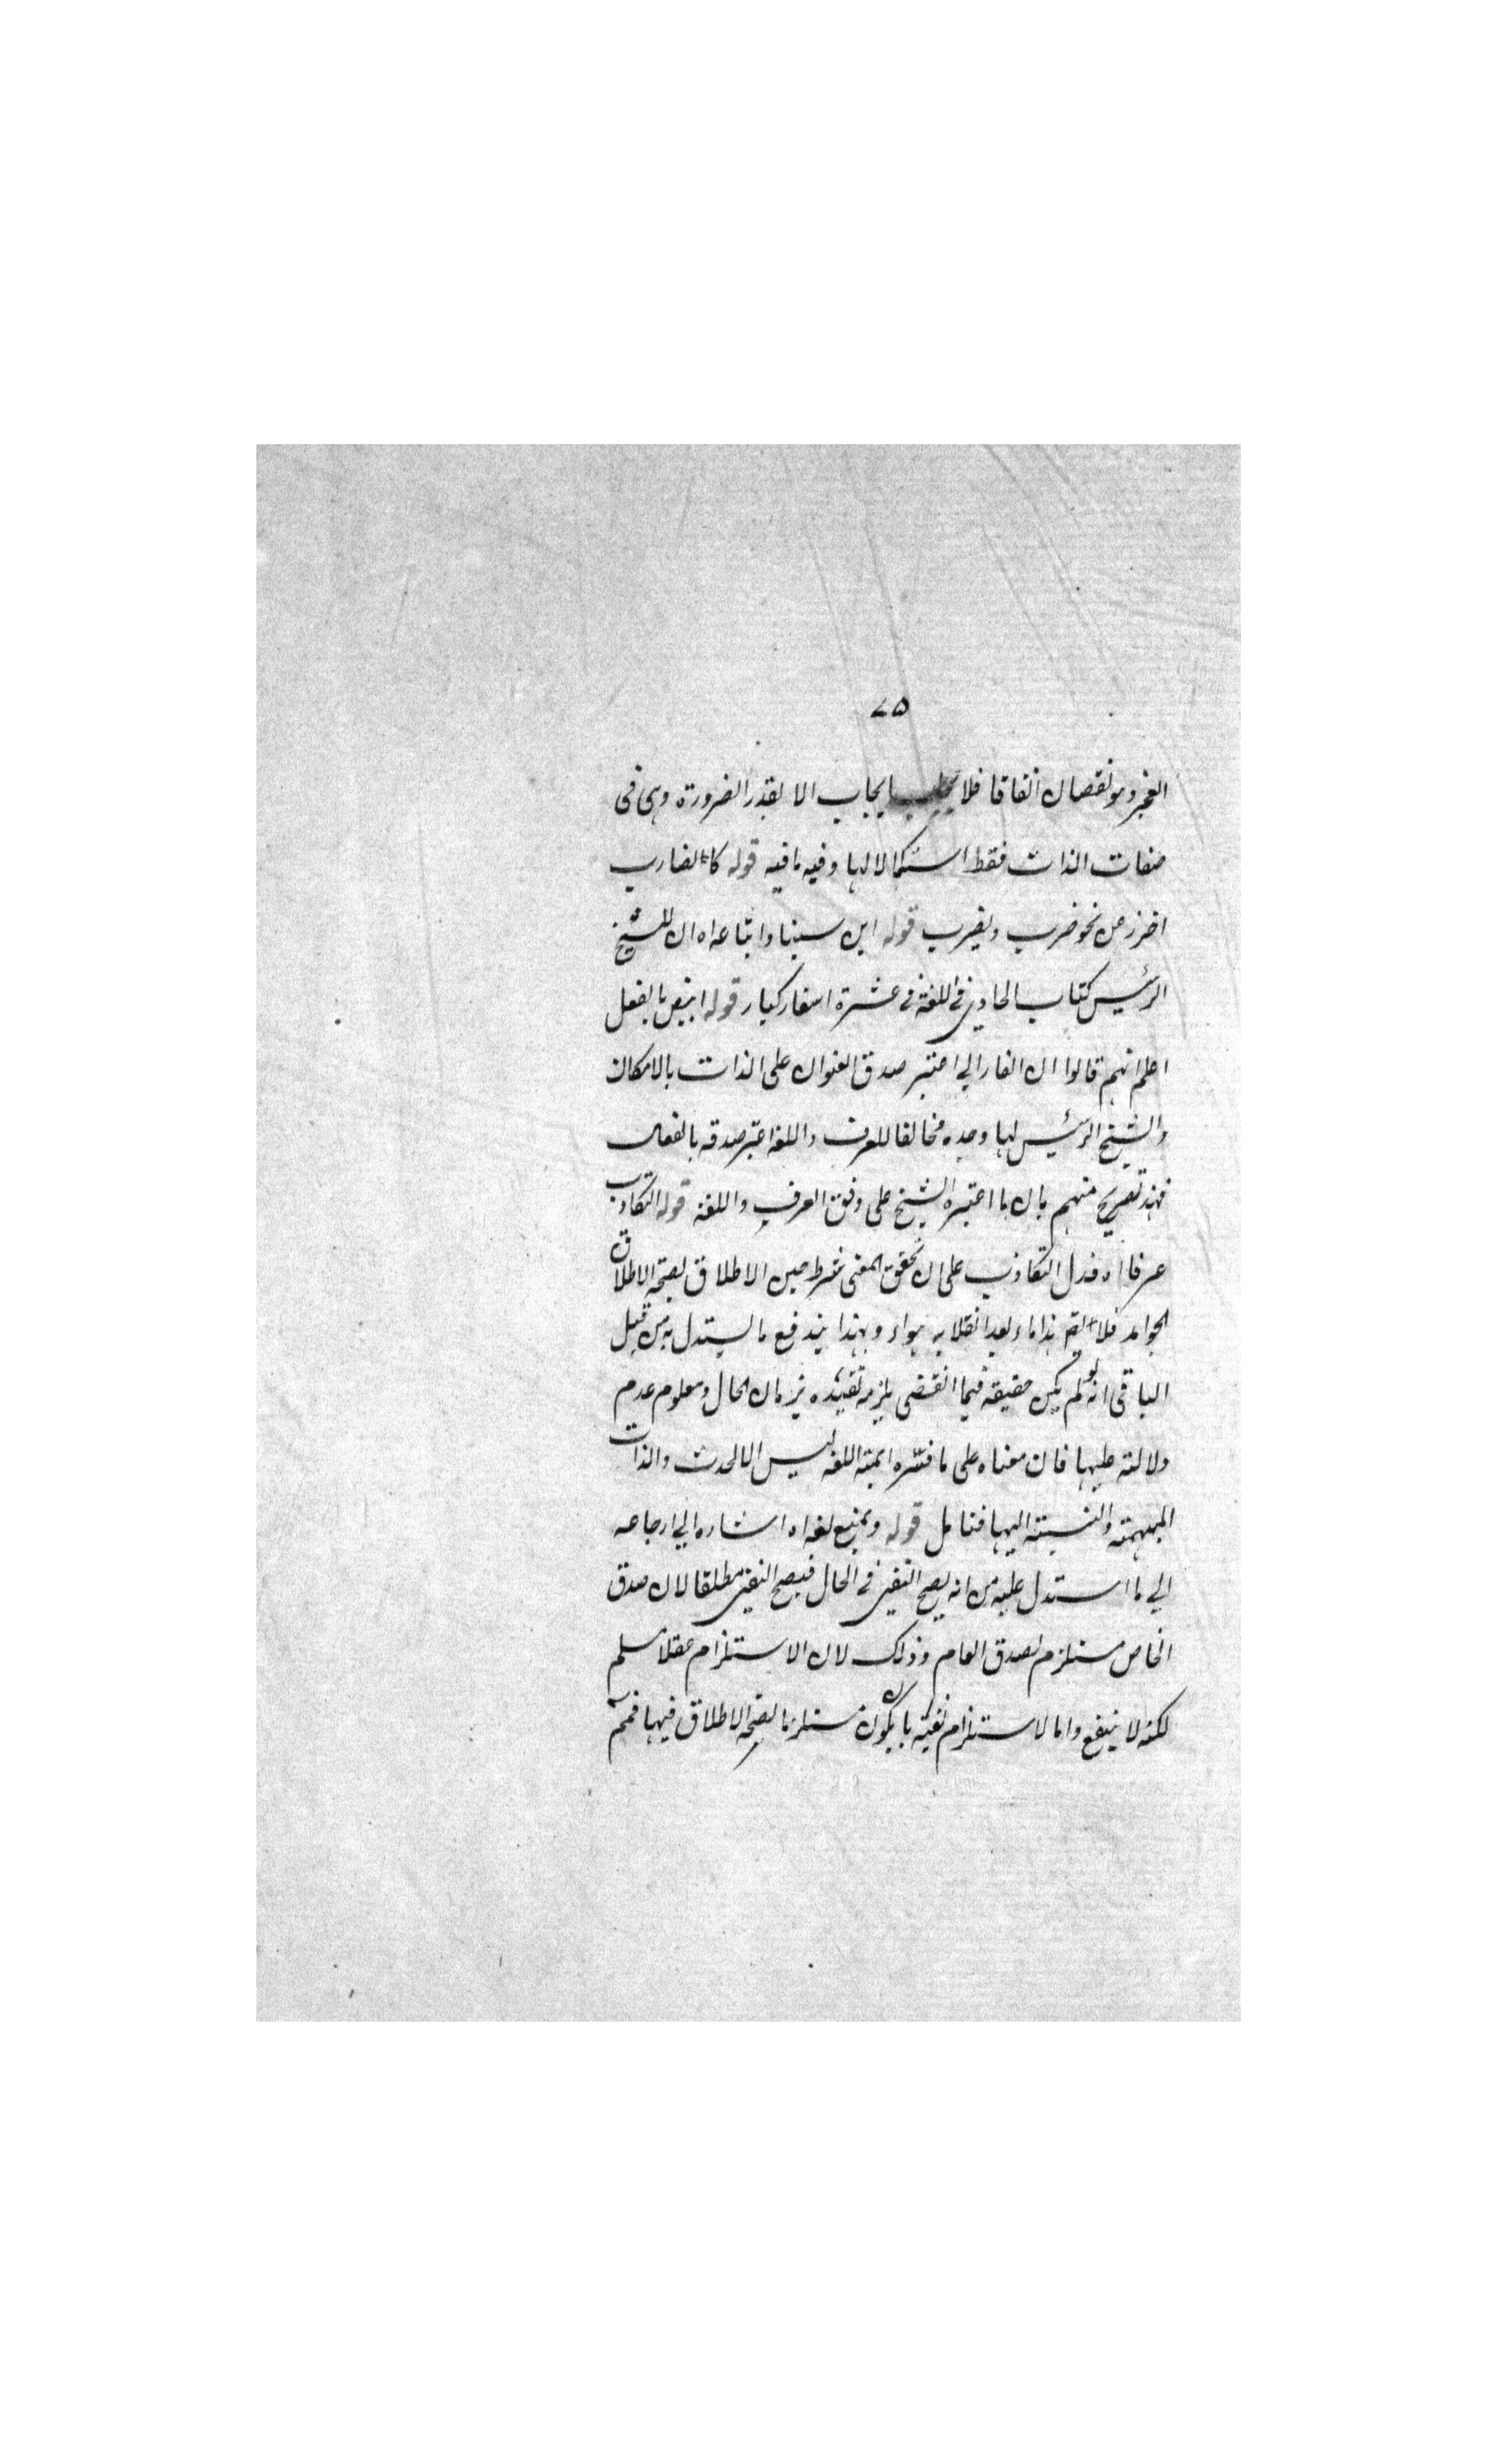 ٧٥
الغير وهو نقصان اتفاقا فلا بايجاب الا بقدر الضرورة وهى فى
صفات الذات فقط استكمالا لها وفيه ما فيه قوله كالضارب
احترز عن نحو ضرب ويضرب قوله ابن سينا واتباعه اه ان للشيخ
الرئيس كتاب الحاوي في اللغة في عشرة اسفار كبار قوله ابيض بالفعل
اعلم انهم قالوا ان الفارابي اعتبر صدق العنوان على الذات بالامكان
والشيخ الرئيس لما وجده مخالفا للعرف واللغة اعتبر صدقه بالفعل
فهذا تصريح منهم بان ما اعتبره الشيخ على وفق العرف واللغة قوله التكاذب
عرفا اه فدل التكاذب على ان تحقق المعنى شرط حين الاطلاق لصحة الاطلاق
الجوامد فلا يقم هذا ماء بعد انقلابه هواء وبهذا يندفع ما يستدل به من قبل
الباقى انه لو لم يكن حقيقة فيما انقضى يلزم تقييده بزمان الحال ومعلوم عدم
دلالته عليها فان معناه على ما فسره ايمة اللغة ليس الا الحدث والذات
المبهمة والنسبة اليها فتامل قوله ويمنع لغة اه اشاره الي ارجاعه
الي ما استدل عليه من انه يصح النفي في الحال فيصح النفي مطلقا لان صدق
الخاص مستلزم لصدق العام وذلك لان الاستلزام عقلا مسلم
لكنه لا ينفع واما الاستلزام لغة بان يكون مستلزما لصحة الاطلاق فيها فمم